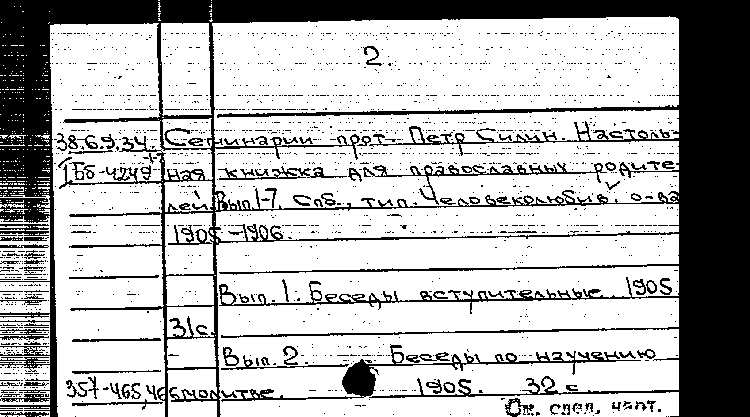 2.
38.69.34. Семинарии прот. Петр Силин. Настоль-
ная книжка для православных родите-
лей. Вып. 1-7. Спб., тип. Человеколюбив. о-ва
1905-1906.
Вып. 1. Беседы вступительные 1905
31с.
Вып. 2. Беседы по научению
молитве. 1905. 32 с.
См. след. част.